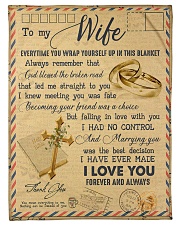 To my Wife
EVERYTIME YOU WRAP YOURSELF UP IN THIS BLANKET
Always remember that
God blessed the broken road
that led me straight to you
I knew meeting you was fate
Becoming your friend was a choice
But falling in love with you
I HAD NO CONTROL
AND Marrying you
was the best decision
I HAVE EVER MADE
I LOVE YOU
FOREVER AND ALWAYS
Thank You